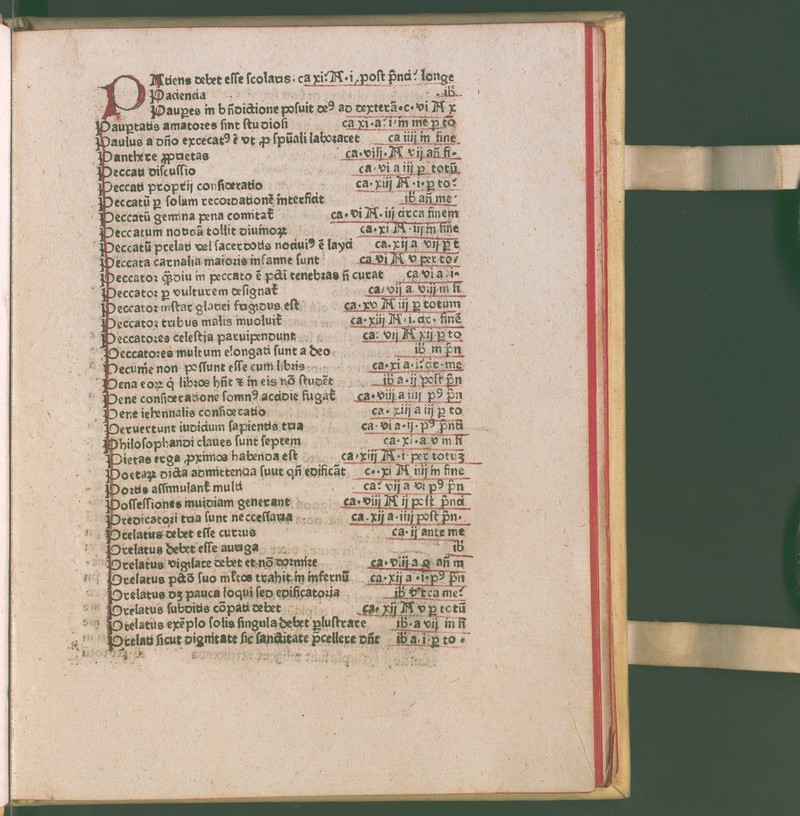 PAtiens debet esse scolaris. ca xi. A. i. post pnci. longe
Paciencia .ib.
Paupes in bndictione posuit de⁹ ad dexterā. c. vi A x
Pauptatis amatores sint studiosi ca xi. a. i. in me p to
Paulus a dño excecat⁹ ē vt p spūali laboraret ca iiij in fine
Panthere ꝓprietas ca. viij. A vij añ fi.
Peccati discussio ca. vi a iij p totū
Peccati proprij consideratio ca. xiij A. i. p to.
Peccatū p solum recordationē interficit ib añ me.
Peccatū gemina pena comitat ca. vi A. iij circa finem
Peccatum noticiā tollit diuinoꝝ ca. xi A. iij in fine
Peccatū prelati vel sacerdotis nociui⁹ ē layci ca. xij a vij p t
Peccata carnalia maioris infamie sunt ca vi A v per to.
Peccator qdiu in peccato ē pcti tenebras ñ curat ca vi a. i.
Peccator p vulturem designat ca. vij a viij in fi
Peccator instar glaciei frigidus est ca. xv A iij p totum
Peccator tribus malis inuoluit ca. xiij A. i. cir. finē
Peccatores celestia paruipendunt ca. vij A xij p to
Peccatores multum elongati sunt a deo ib in pn
Pecunie non possunt esse cum libris ca. xi a. i. cir. me
Pena eoꝝ q libros hñt ⁊ in eis nō studēt ib a. ij post pn
Pene consideratione somn⁹ accidie fugat ca. viij a iiij p⁹ pn
Pene iehennalis consideratio ca. xiij a iij p to
Peruertunt iudicium sapientis tria ca. vi a. ij. p⁹ pnci
Philosophandi claues sunt septem ca. xi. a v in fi
Pietas erga ꝓximos habenda est ca. xiij A. i per totuʒ
Poetaꝝ dicta admittenda suut qñ edificāt c. xi A iiij in fine
Portis assimulant multi ca. vij a vi p⁹ pn
Possessiones inuidiam generant ca. viij A ij post pnci
Predicatori tria sunt neccessaria ca. xij a. iiij post pn.
Prelatus debet esse currus ca. ij ante me
Prelatus debet esse auriga ib
Prelatus vigilare debet et nō dormire ca. viij a 9. añ m
Prelatus pctō suo mltos trahit in infernū ca. xij a. i. p⁹ pn
Prelatus dʒ pauca loqui sed edificatoria ib vltra me.
Prelatus subditis cōpati debet ca. xij A v p totū
Prelatus exēplo solis singula debet plustrare ib. a vij in fi
Prelati sicut dignitate sic sanctitate pcellere dñt ib a. i. p to.